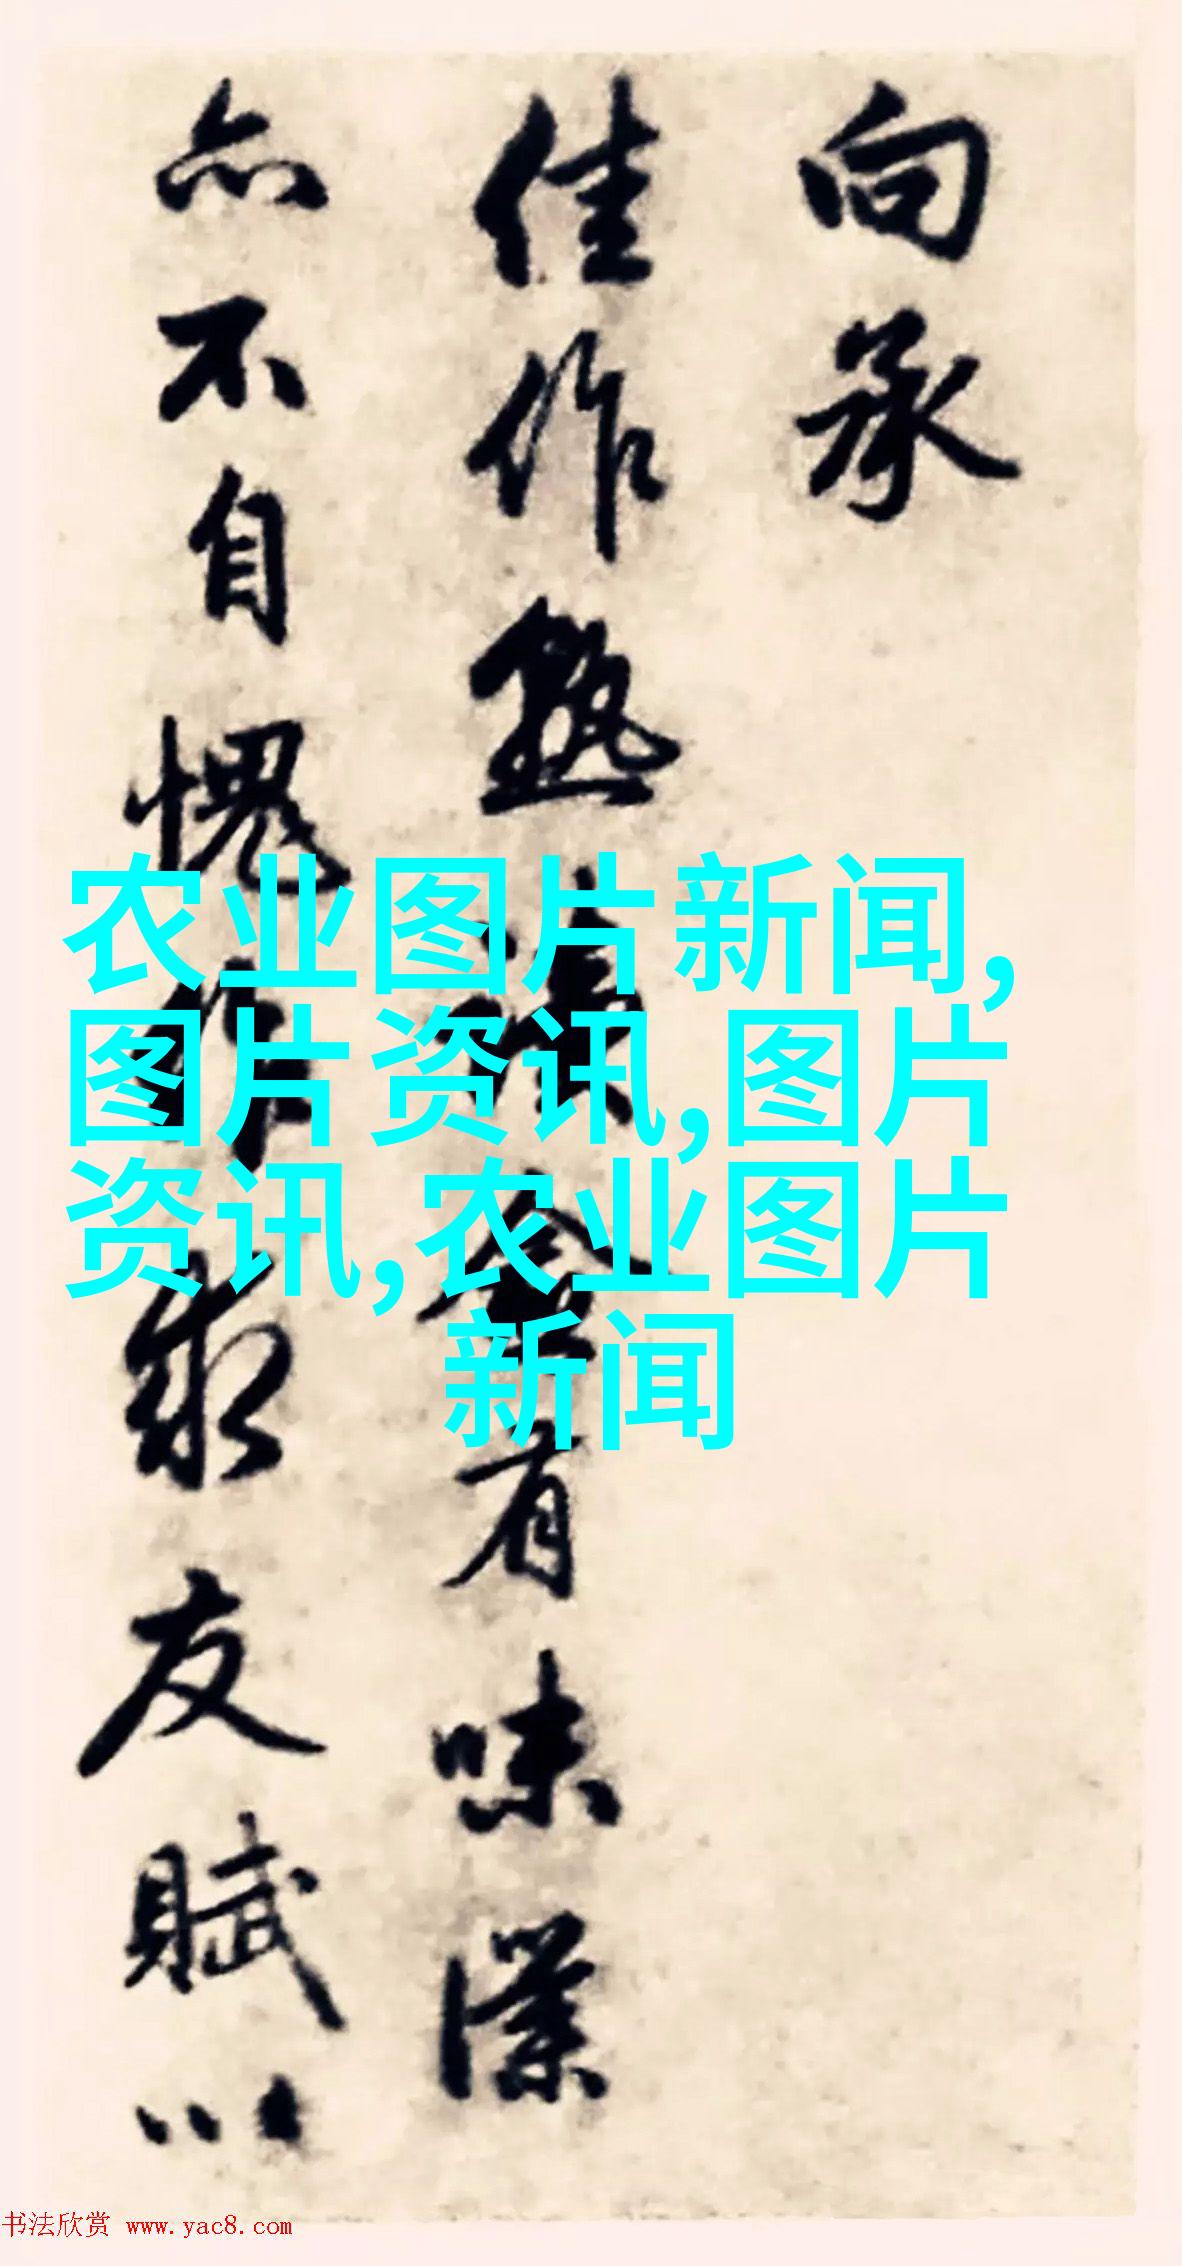 向承
佳作熟读金有味仆
亦不自愧作求友赋以
农业图片新闻,
图片资讯,图片
资讯,农业图片
新闻
书法欣赏 www.yac8.com